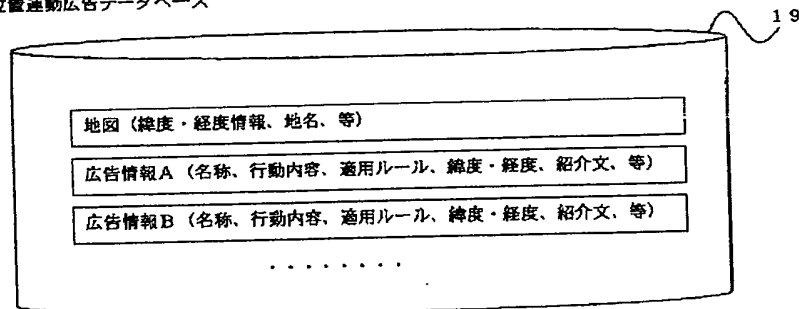 位置連動広告データベース
19
地図（緯度・経度情報、地名、等）
広告情報A（名称、行動内容、適用ルール、緯度・経度、紹介文、等）
広告情報B（名称、行動内容、適用ルール、緯度・経度、紹介文、等）
・・・・・・・・